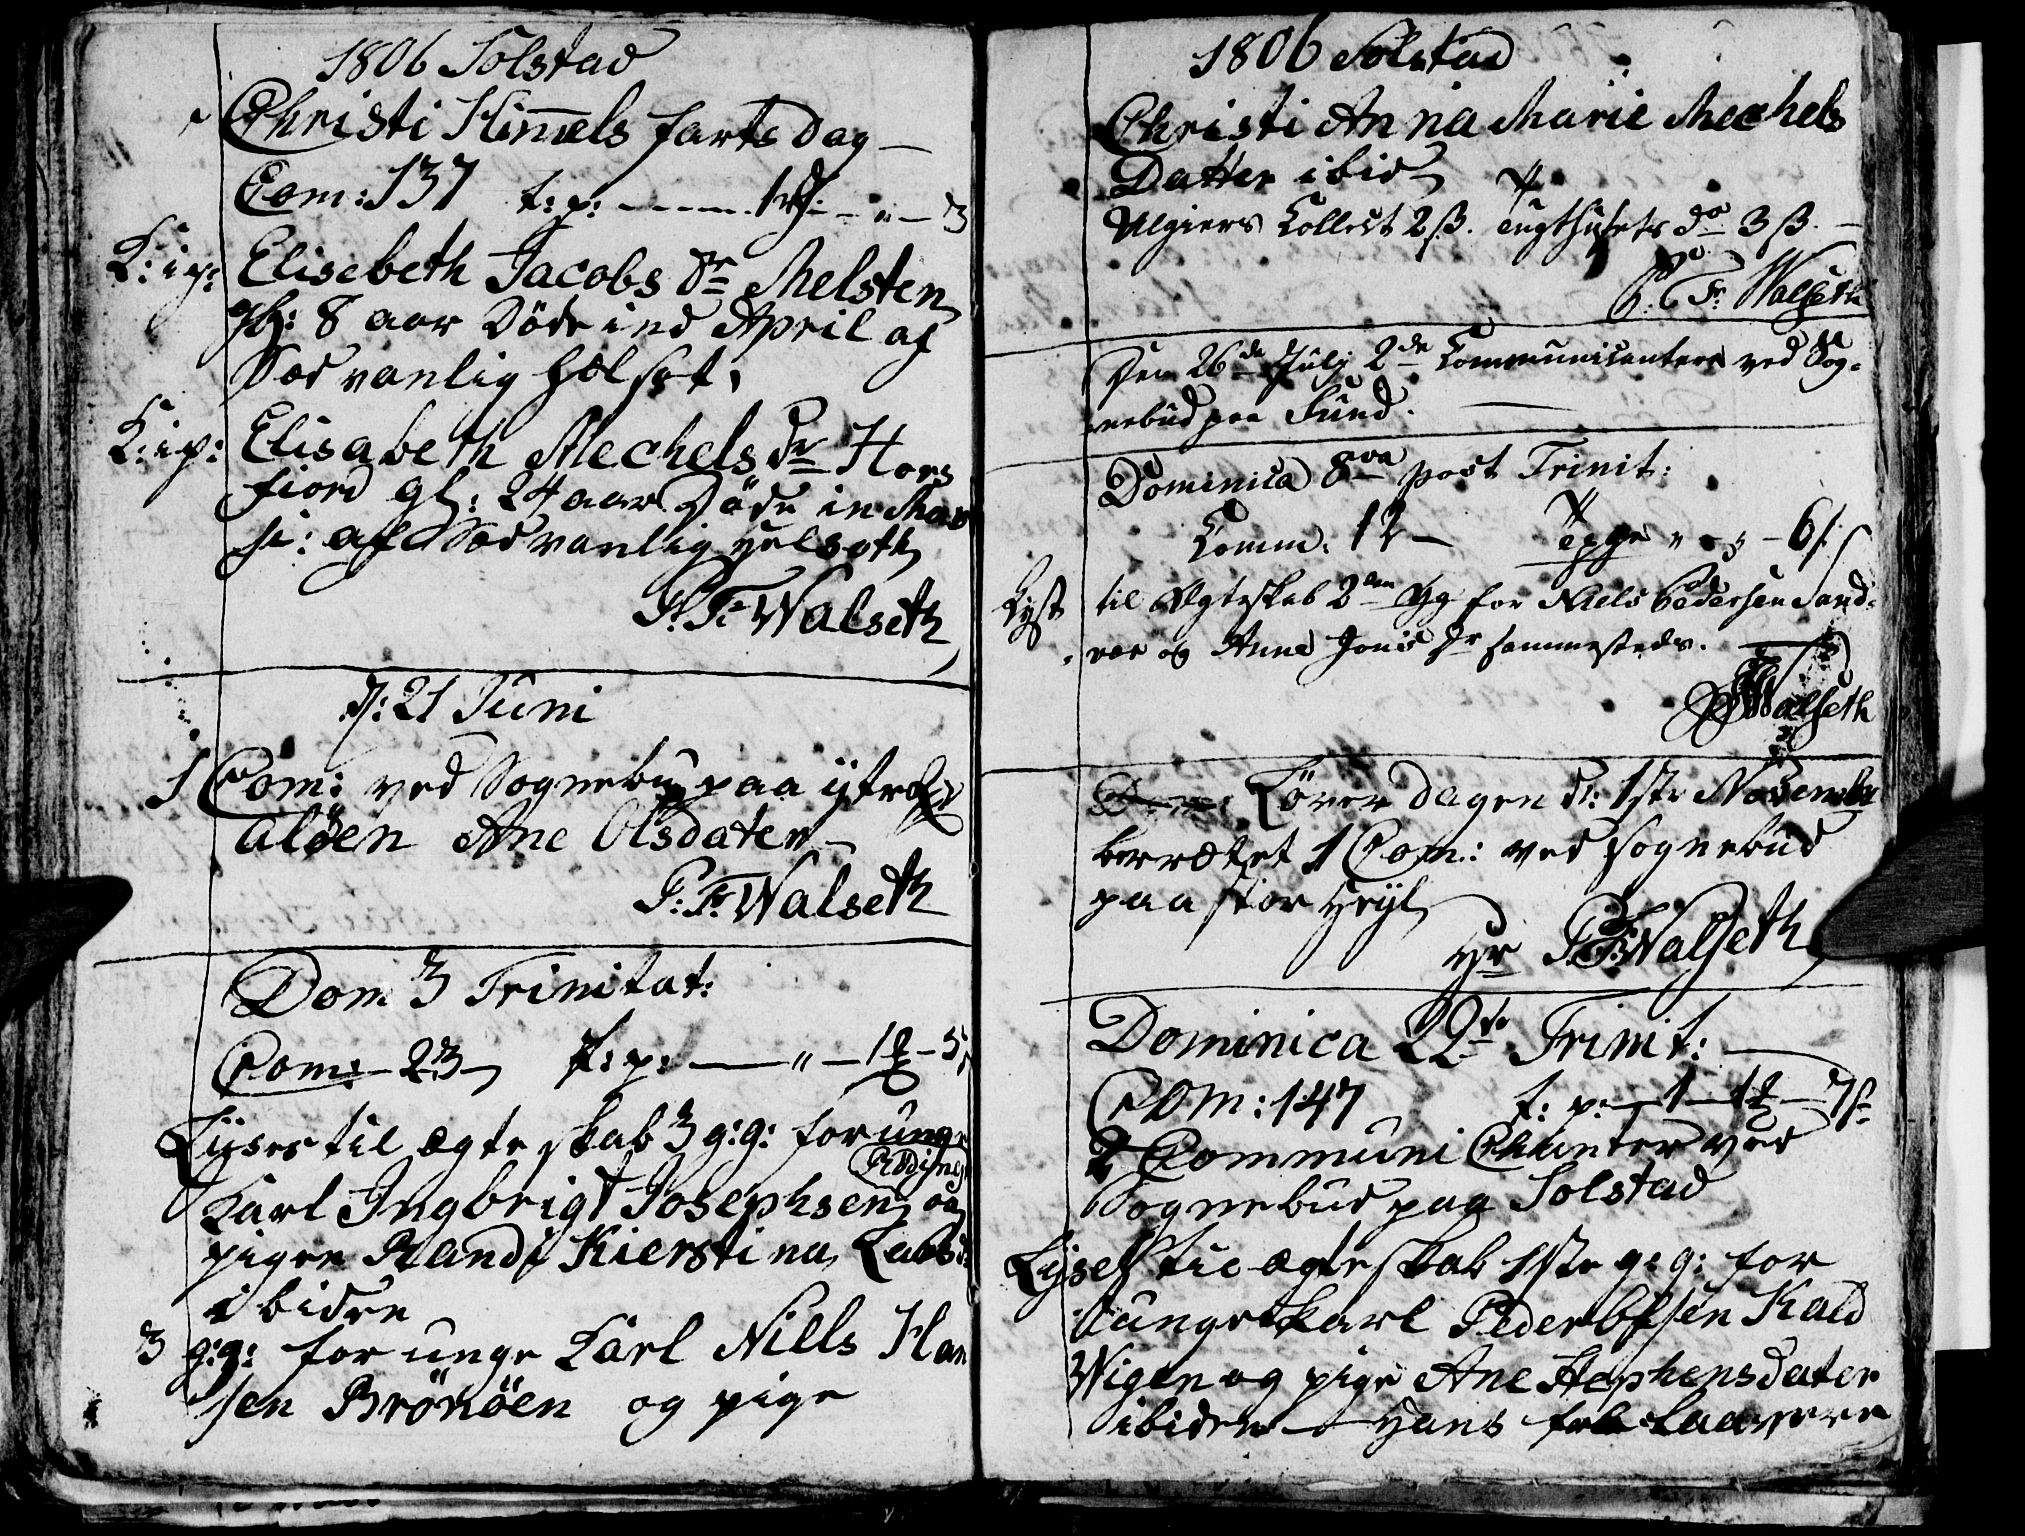 1806 Solstad
Christi Himmels farts Dag
Com: 137 t: p: 1 - " - 3
L: ip: Elisebeth Jacobs dr Melsten
gl: 8 aar Döde ined April af
Sædvanlig
L: ip: Elisabeth Mechels dr Hors
fiord gl: 24 aar Döde in Mar
si: af Sædvanlig
P: F: Walseth
d: 21 Juni
1 Com: ved Sognebu paa ytre
alöen Ane Olsdater
P: F: Walseth
Dom 3 Trinitat:
Com: 23 t: p: " - 12 - 5
Lyses til ægteskab 3 g: g: for unge
Karl Ingbrigt Josephsen og
pigen Randi Kierstina Lars
ibiden
3 g: g: for unge Karl Niels Han
sen Brönöen og pige
1806 Solstad
Christi Anna Marie Mechels
Datter ibid
Algiers Collect 2 ß. Tugthusets do 3 ß.
P. F. Walseth
Den 26de July 2de Communicantere ved Sog-
nebud paa Sund.
Dominica 8va post Trinit:
Comm: 12 - 6 ß
Lyst til Ægteskab 2den Gg for Niels Pedersen Sand-
vær og Anne Jonis dr sammesteds.
P F Walseth
Löverdagen d: 1ste November
berrætet 1 Com: ved sognebud
paa stor
P F Walseth
Dominica 22de Trinit:
Com: 147 t: p: 1 - 12 - 7 ß
2 Communi Chanter ved
Sognebud paa Solstad
Lyset til ægteskab 1ste g: g: for
unge Karl Peder Olsen Kald
Wigen og pige Ane Stephensdater
ibiden - Hans